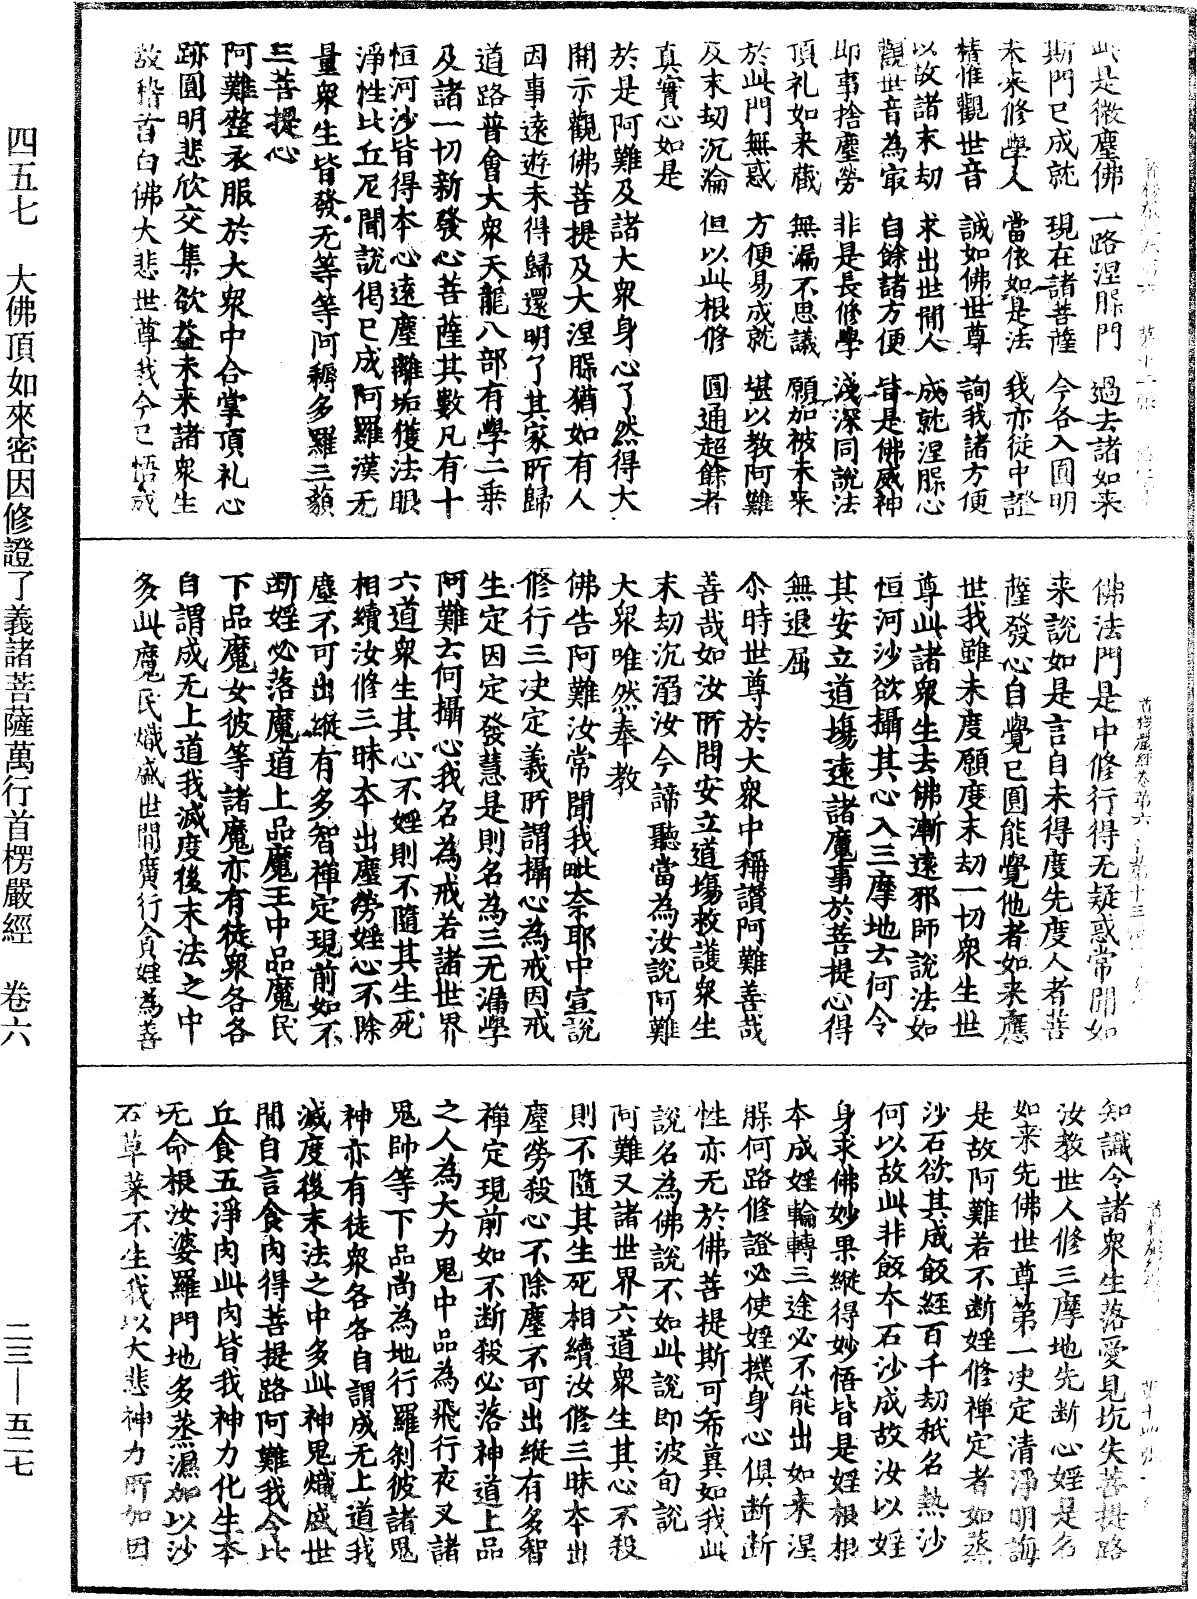 此是微塵佛 一路涅槃門 過去諸如来
斯門已成就 現在諸菩薩 今各入圓明
未来修學人 當依如是法 我亦從中證
非惟觀世音 誠如佛世尊 詢我諸方便
以故諸末劫 求出世間人 成就涅槃心
觀世音為㝡 自餘諸方便 皆是佛威神
即事捨塵勞 非是長修學 淺深同說法
頂礼如来蔵 無漏不思議 願加被未来
於此門無惑 方便易成就 堪以教阿難
及末劫沉淪 但以此根修 圓通超餘者
真實心如是
於是阿難及諸大衆身心了然得大
開示觀佛菩提及大涅槃猶如有人
因事遠遊未得歸還明了其家所歸
道路普會大衆天龍八部有學二乗
及諸一切新發心菩薩其數凡有十
恒河沙皆得本心遠塵離垢獲法眼
淨性比丘尼聞說偈已成阿羅漢无
量衆生皆發无等等阿耨多羅三藐
三菩提心
阿難整衣服於大衆中合掌頂礼心
跡圓明悲欣交集欲益未来諸衆生
故稽首白佛大悲世尊我今已悟成
佛法門是中修行得无疑惑常聞如
来說如是言自未得度先度人者菩
薩發心自覺已圓能覺他者如来應
世我雖未度願度末劫一切衆生世
尊此諸衆生去佛漸遠邪師說法如
恒河沙欲攝其心入三摩地去何令
其安立道塲遠諸魔事於菩提心得
無退屈
尒時世尊於大衆中稱讚阿難善哉
善哉如汝所問安立道塲救護衆生
末劫沉溺汝今諦聽當為汝說阿難
大衆唯然奉教
佛告阿難汝常聞我毗奈耶中宣說
修行三决定義所謂攝心為戒因戒
生定因定發慧是則名為三无漏學
阿難去何攝心我名為戒若諸世界
六道衆生其心不婬則不隨其生死
相續汝修三昧夲出塵勞婬心不除
塵不可出縱有多智禅定現前如不
断婬必落魔道上品魔王中品魔民
下品魔女彼等諸魔亦有徒衆各各
自謂成无上道我滅度後末法之中
多此魔民熾盛世間廣行貪婬為善
知識令諸衆生落愛見坑失菩提路
汝教世人修三摩地先断心婬是名
如来先佛世尊第一决定清淨明誨
是故阿難若不断婬修禅定者如蒸
沙石欲其成飯經百千劫秖名熱沙
何以故此非飯夲石沙成故汝以婬
身求佛妙果縱得妙悟皆是婬根根
本成婬輪轉三途必不能出如来涅
槃何路修證必使婬機身心俱断断
性亦无於佛菩提斯可希真如我此
說名為佛說不如此說即波旬說
阿難又諸世界六道衆生其心不殺
則不隨其生死相續汝修三昧夲出
塵勞殺心不除塵不可出縱有多智
禅定現前如不断殺必落神道上品
之人為大力鬼中品為飛行夜叉諸
鬼帥等下品尚為地行羅刹彼諸鬼
神亦有徒衆各各自謂成无上道我
滅度後末法之中多此神鬼熾盛世
間自言食肉得菩提路阿難我令比
丘食五淨肉此肉皆我神力化生夲
无命根汝婆羅門地多蒸濕加以沙
石草菜不生我以大悲神力所加因
首楞嚴經卷第六 第十三
四五七 大佛頂如來密因修證了義諸菩薩萬行首楞嚴經 卷六 二三—五二七